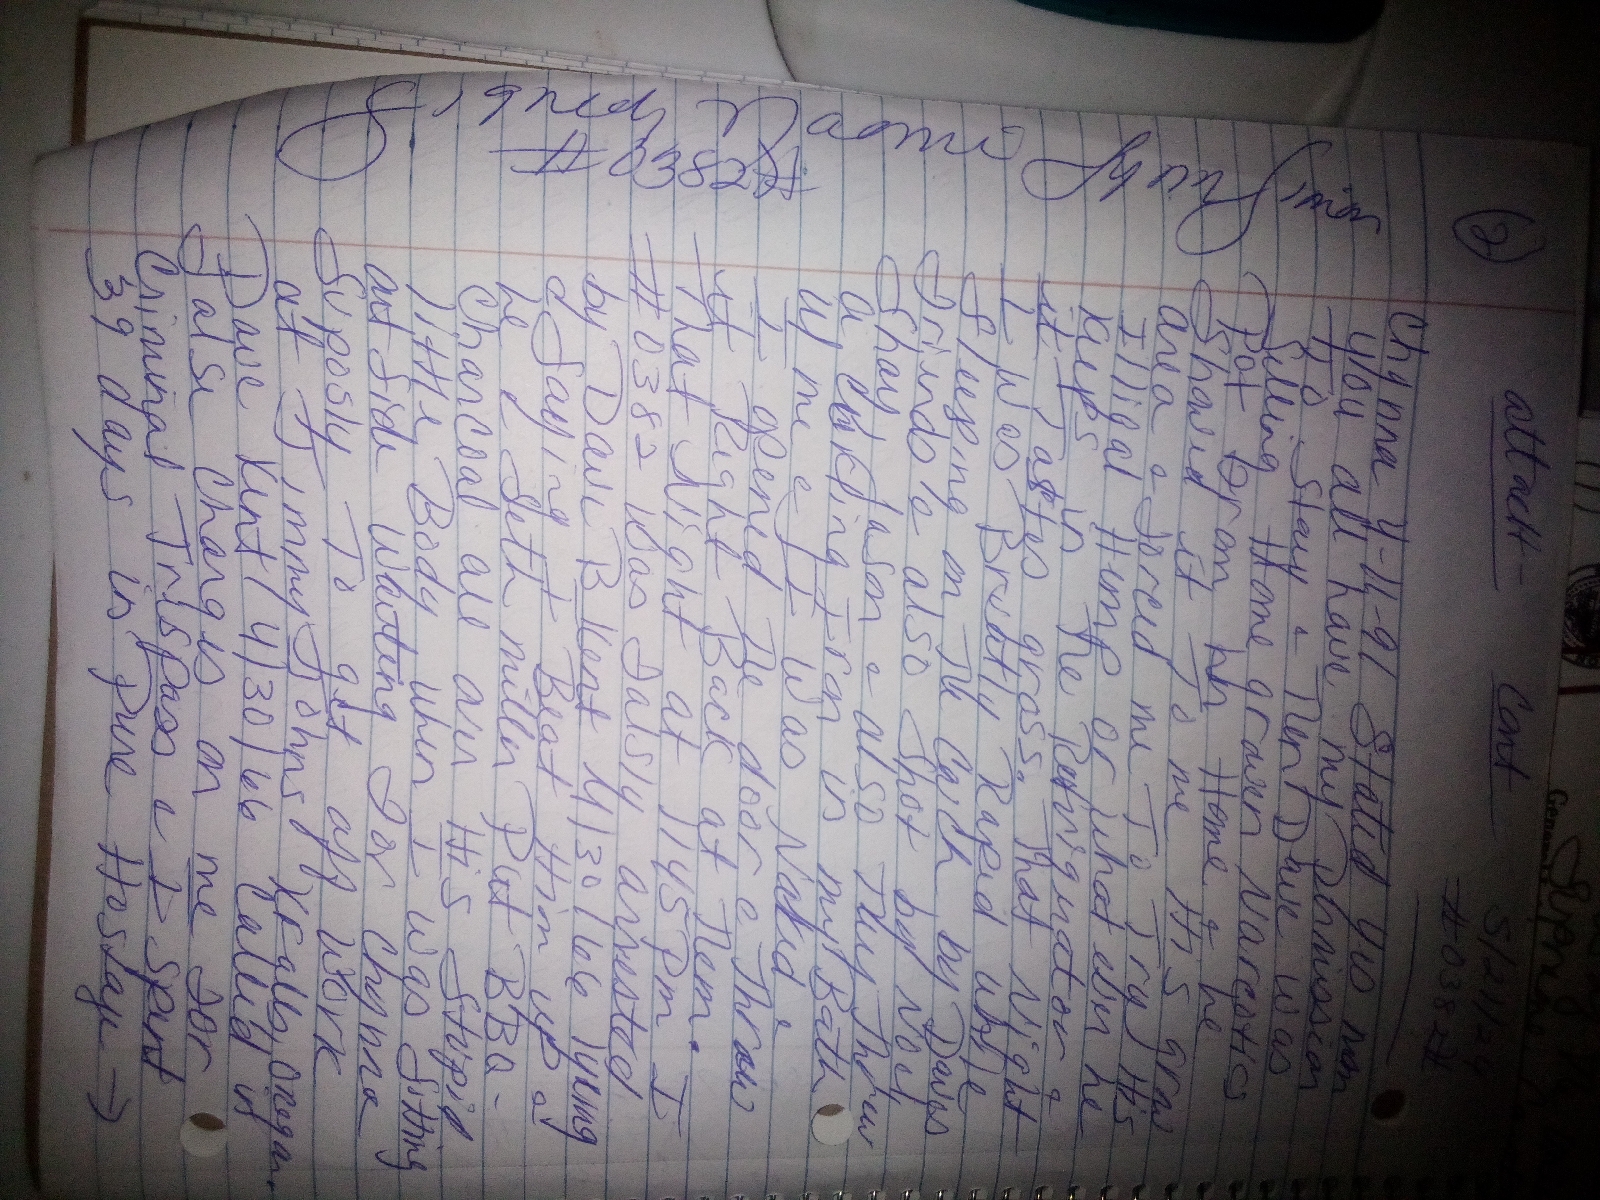 (2) attacH- Cont 5/21/24
#0382#
Chynna 4-11-91 Stated yes mom
you all have my Permisson
To Stay. Then Dave was
Selling Home grown Narcotics
Pot From his Home & he
Showed it To me His grow
area & Forced me To Try His
Illigal Hemp or what ever he
Keeps in The Refrigerator &
it Tastes gross. That Night
I was Brutly Raped while
Sleeping on The Couch by Daves
Friends & also Shot by Noey
Shay & Jason & also They Threw
a cooking Iron in my Bath
w/ me & I was Naked.
I opened The door & Threw
it Right Back at Them.
That Night at 1145 Pm I
#0382 was Falsly arrested
by Dave B Kent 4/30/66 lying
& Saying I Beat Him up &
he & Seth miller Put BBQ-
Charcoal all over His Stupid
little Body when I was Sitting
outside Waiting For Chynna
Suposly To get off work
at Jimmy Johns KFalls, Oregon.
Dave Kent (4/30/66 Called in
False Charges on me For
Criminal Trespass & I Spent
39 days in Pure Hostage →
Simon
Naomi
Sybrndy
#0382#